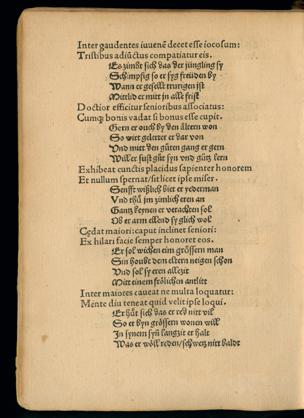 Inter gaudentes iuuenẽ decet esse iocosum:
Tristibus adiũctus compatiatur eis.
Es zimbt sich das der jüngling sy
Schimpfig so er syg freüden by
Wann er gesellt trurigen ist
Mittlid er mitt jn alle frist
Doctior efficitur senioribus associatus:
Cumq̃ bonis vadat si bonus esse cupit.
Gern er ouch by den ältern won
So wirt gelerter er dar von
Vnd mitt den gůten gang er gern
Will er sust gůt syn vnd gůtz lern
Exhibeat cunctis placidus sapienter honorem
Et nullum spernat/sit licet ipse miser.
Senfft wißlich biet er yederman
Vnd thů jm zimlich eren an
Gantz keynen er verachten sol
Ob er arm ellend sy glich wol
Cędat maiori: caput inclinet seniori:
Ex hilari facie semper honoret eos.
Er sol wichen eim grössern man
Sin houbt dem eltern neigen schon
Vnd sol sy eren allezit
Mitt einem frölichen antlitt
Inter maiores caueat ne multa loquatur:
Mente diu teneat quid velit ipse loqui.
Er hüt sich das er red nitt vil
So er byn grössern wonen will
In synem syñ langzit er halt
Was er wöll reden/schwetz nitt baldt